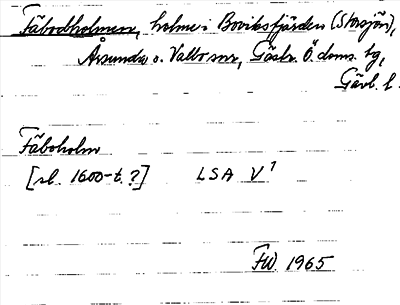 Fäbodholmen, holme i Boviksfjärden (Storsjön),
Årsunda o. Valbo snr, Gästr. Ö. doms. hg,
Gävl. l.
Fäboholm
[sl. 1600-t. ?] LSA V 1
FW. 1965